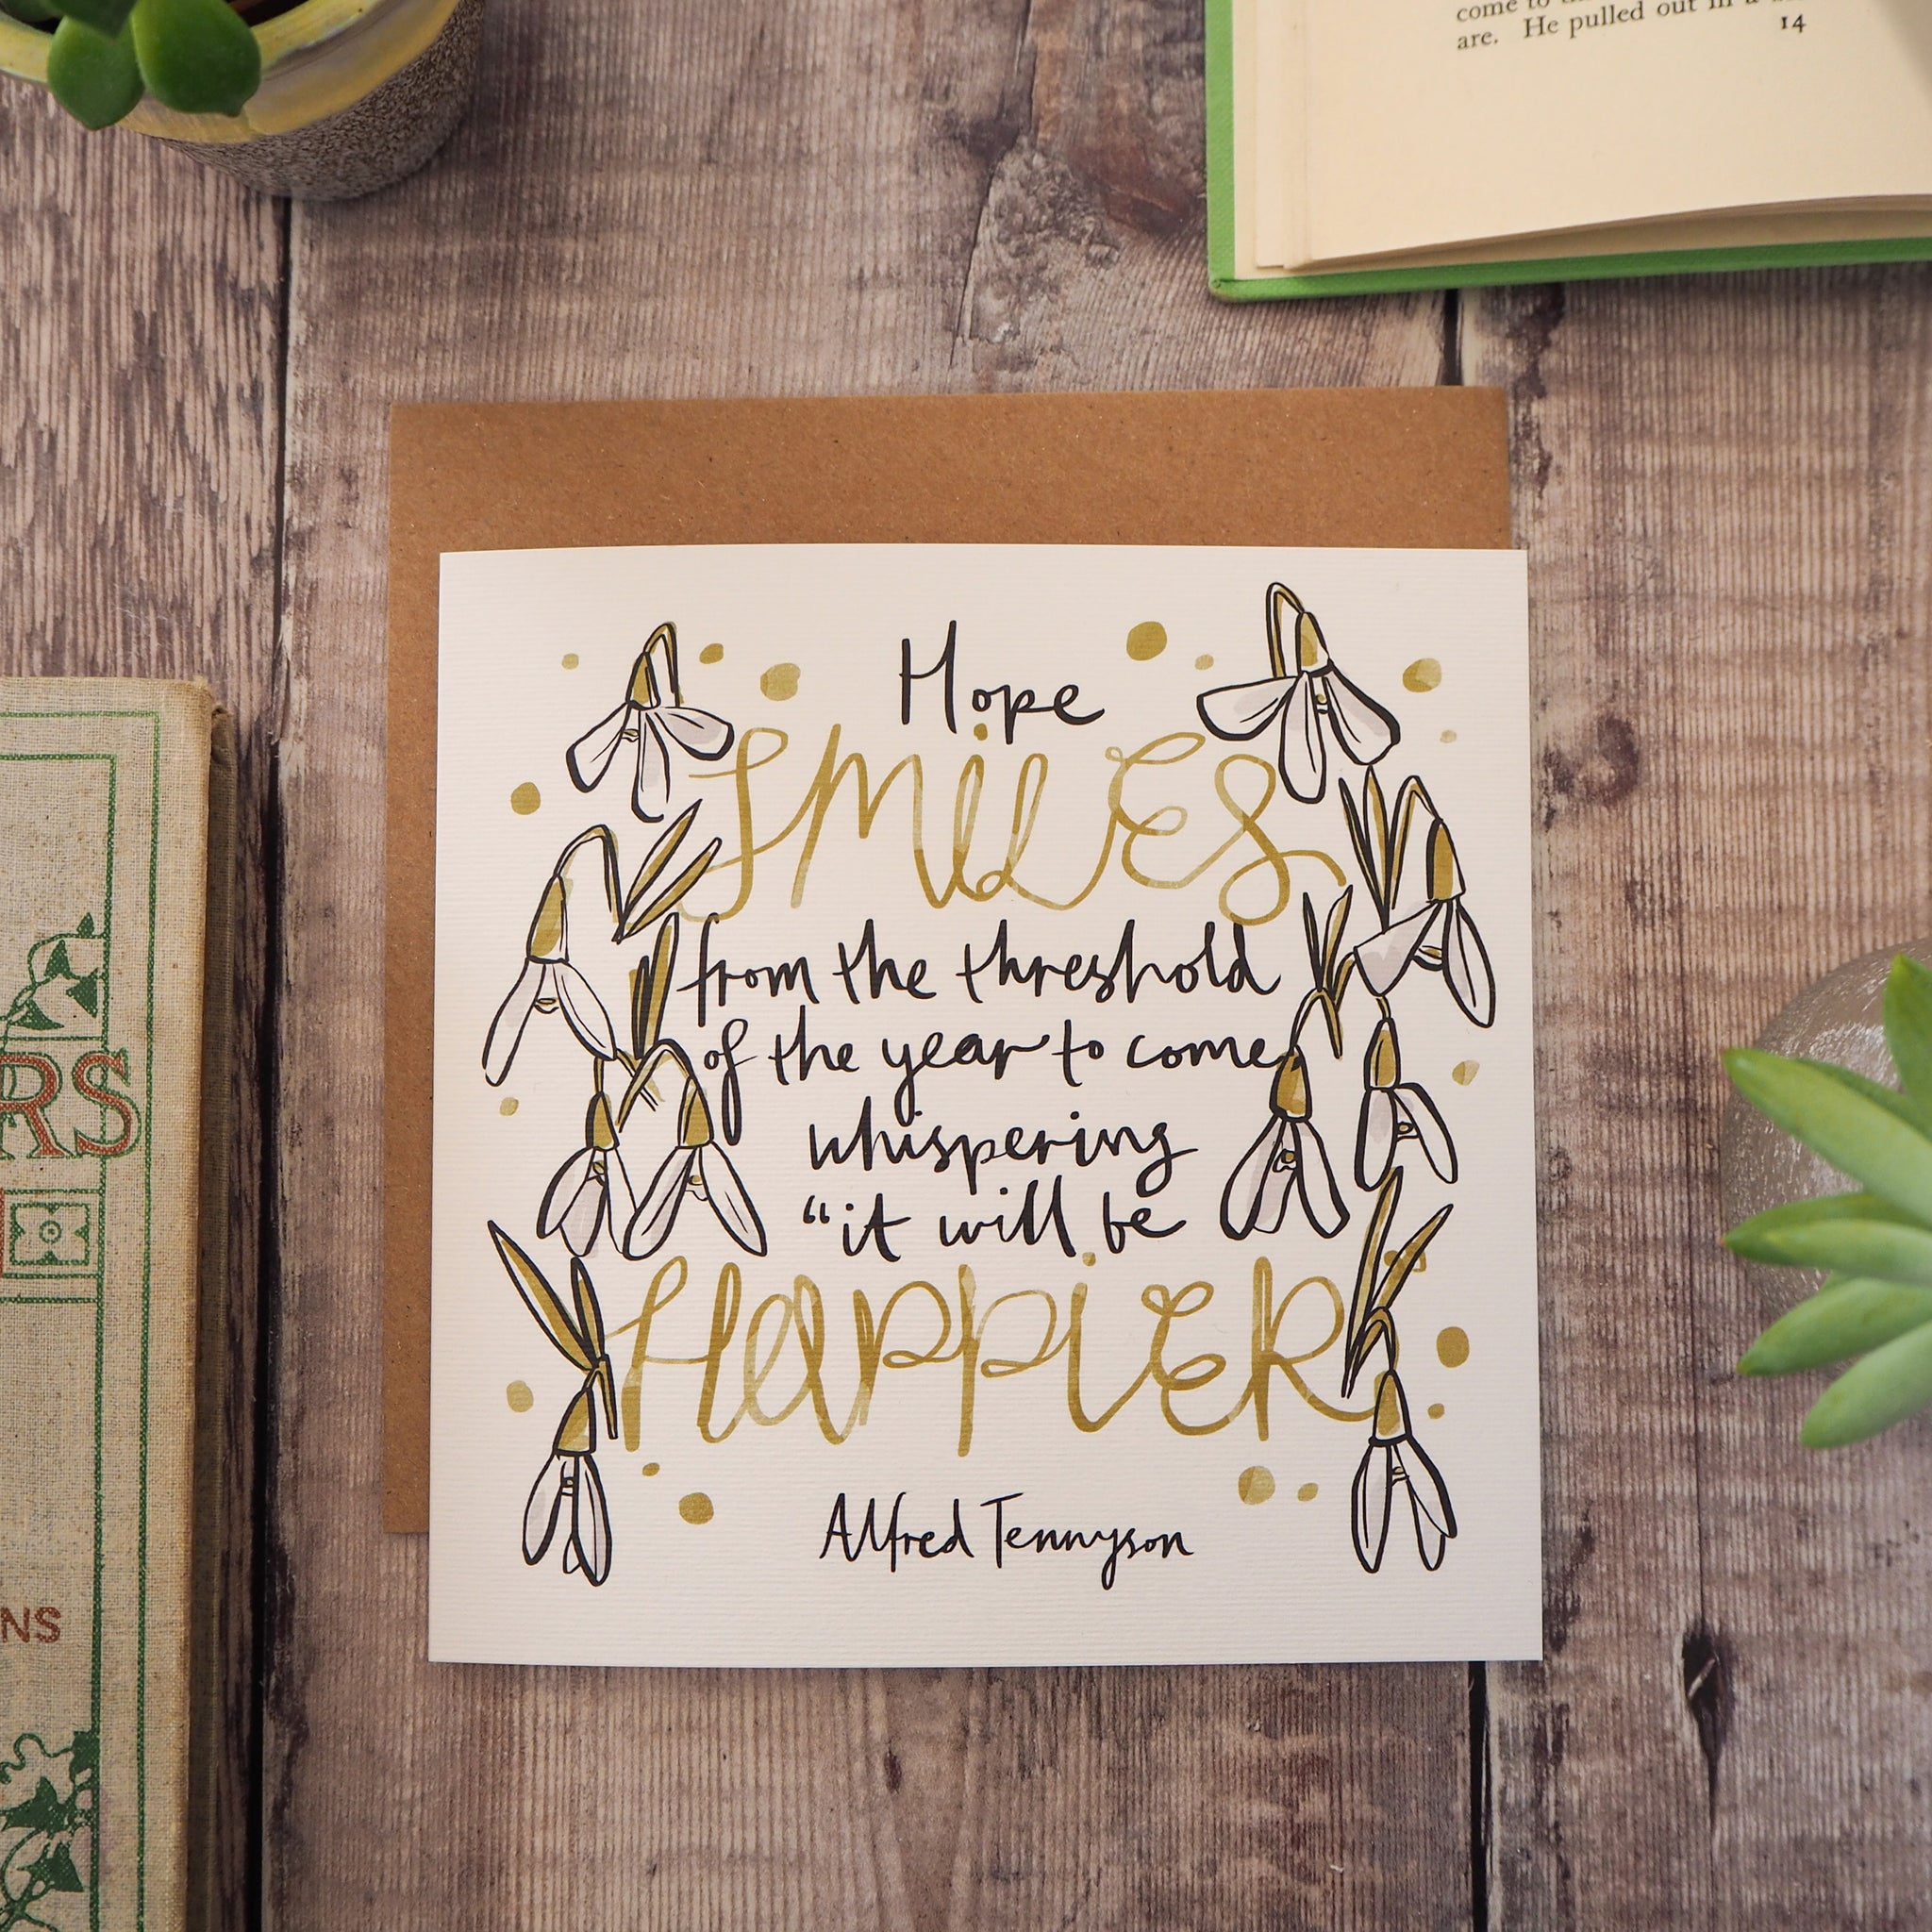 are. He pulled out in a
14
Hope
SMiLES
from the threshold
of the year to come
whispering
“it will be
HAPPiER
Alfred Tennyson
RS
NS